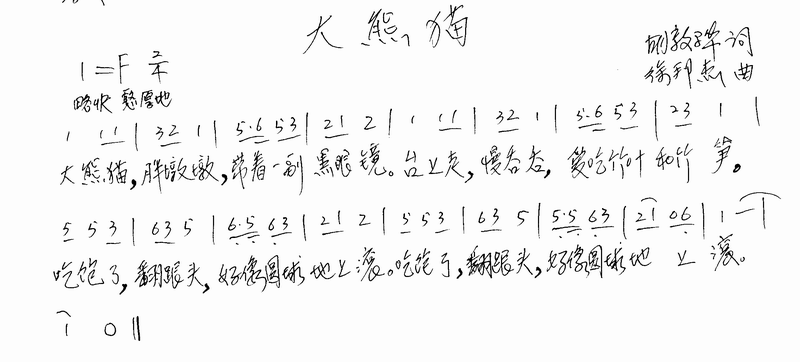 大熊猫
1=F 2/4
胡敦骅 词
徐邦杰 曲
略快 憨厚地
1 11 | 32 1 | 5·6 53 | 21 2 | 1 11 | 32 1 | 5·6 53 | 23 1 |
大熊猫,胖墩墩,带着一副黑眼镜。台上走,慢吞吞,爱吃竹叶和竹笋。
5 53 | 63 5 | 6·5 63 | 21 2 | 5 53 | 63 5 | 5·5 63 | 21 06 | 1 - |
吃饱了,翻跟头,好像圆球地上滚。吃饱了,翻跟头,好像圆球地上滚。
1 0 ‖